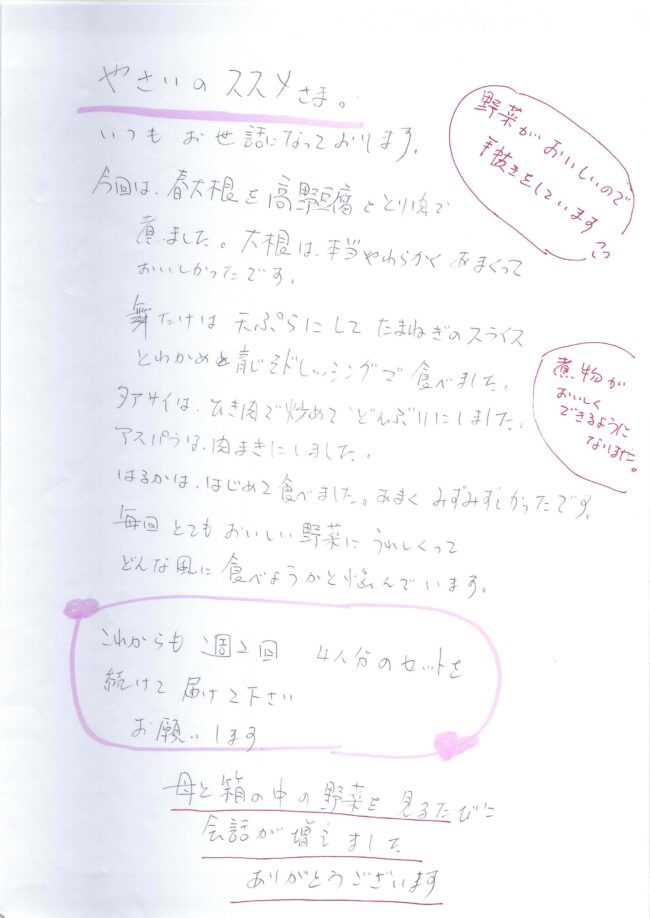 やさいのススメさま。
いつもお世話になっております。
野菜がおいしいので
手抜きをしています
今回は、春大根を高野豆腐ととり肉で
煮ました。大根は、本当やわらかくあまくって
おいしかったです。
舞たけは天ぷらにしてたまねぎのスライス
とわかめを青じそドレッシングで食べました。
煮物が
おいしく
できるように
なりました。
タアサイは、ひき肉で炒めてどんぶりにしました。
アスパラは、肉まきにしました。
はるかは、はじめて食べました。あまくみずみずしかったです。
毎回とてもおいしい野菜にうれしくって
どんな風に食べようかと悩んでいます。
これからも週2回 4人分のセットを
続けて届けて下さい
お願いします。
母と箱の中の野菜を見るたびに
会話が増えました
ありがとうございます